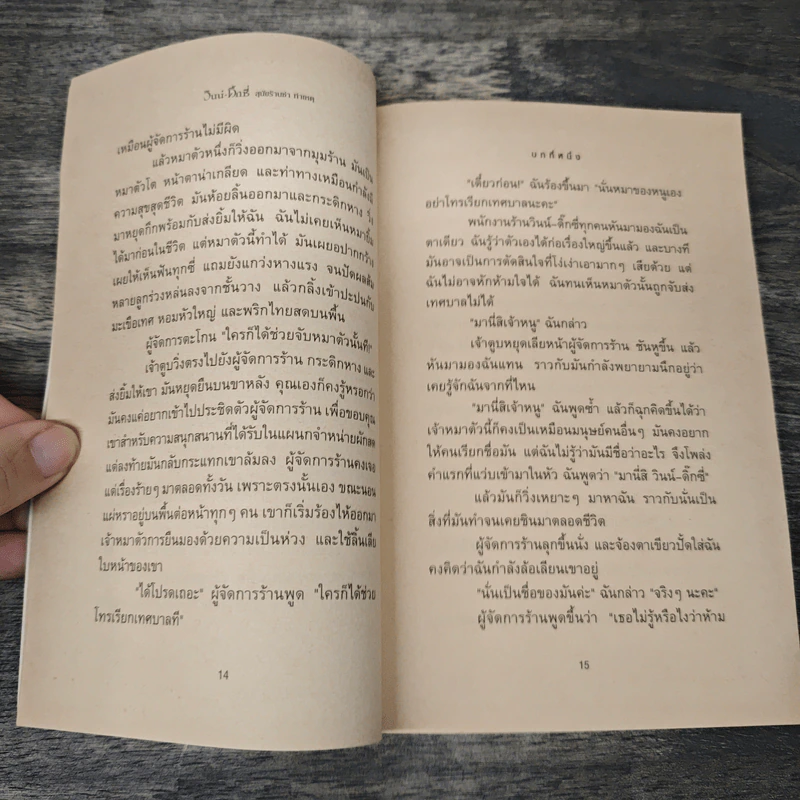 วินน์-ดิ๊กซี่ สุนัขร้านชำ
เหมือนผู้จัดการร้านไม่มีผิด
แล้วหมาตัวหนึ่งก็วิ่งออกมาจากมุมร้าน มันเป็น
หมาตัวโต หน้าตาน่าเกลียด และท่าทางเหมือนกำลังมี
ความสุขสุดชีวิต มันห้อยลิ้นออกมาและกระดิกหาง วิ่ง
มาหยุดกึกพร้อมกับส่งยิ้มให้ฉัน ฉันไม่เคยเห็นหมายิ้ม
ได้มาก่อนในชีวิต แต่หมาตัวนี้ทำได้ มันเผยอปากกว้าง
เผยให้เห็นฟันทุกซี่ แถมยังแกว่งหางแรง จนปัดผลส้ม
หลายลูกร่วงหล่นลงจากชั้นวาง แล้วกลิ้งเข้าปะปนกับ
มะเขือเทศ หอมหัวใหญ่ และพริกไทยสดบนพื้น
ผู้จัดการตะโกน "ใครก็ได้ช่วยจับหมาตัวนั้นที!"
เจ้าตูบวิ่งตรงไปยังผู้จัดการร้าน กระดิกหาง และ
ส่งยิ้มให้เขา มันหยุดยืนบนขาหลัง คุณเองก็คงรู้หรอกว่า
มันคงแค่อยากเข้าไปประชิดตัวผู้จัดการร้าน เพื่อขอบคุณ
เขาสำหรับความสนุกสนานที่ได้รับในแผนกจำหน่ายผักสด
แต่ลงท้ายมันกลับกระแทกเขาล้มลง ผู้จัดการร้านคงเจอ
แต่เรื่องร้ายๆ มาตลอดทั้งวัน เพราะตรงนั้นเอง ขณะนอน
แผ่หราอยู่บนพื้นต่อหน้าทุกๆ คน เขาก็เริ่มร้องไห้ออกมา
เจ้าหมาตัวการยืนมองด้วยความเป็นห่วง และใช้ลิ้นเลีย
ใบหน้าของเขา
"ได้โปรดเถอะ" ผู้จัดการร้านพูด "ใครก็ได้ช่วย
โทรเรียกเทศบาลที"
14
บทที่หนึ่ง
"เดี๋ยวก่อน!" ฉันร้องขึ้นมา "นั่นหมาของหนูเอง
อย่าโทรเรียกเทศบาลนะคะ"
พนักงานร้านวินน์-ดิ๊กซี่ทุกคนหันมามองฉันเป็น
ตาเดียว ฉันรู้ว่าตัวเองได้ก่อเรื่องใหญ่ขึ้นแล้ว และบางที
มันอาจเป็นการตัดสินใจที่โง่เง่าเอามากๆ เสียด้วย แต่
ฉันไม่อาจหักห้ามใจได้ ฉันทนเห็นหมาตัวนั้นถูกจับส่ง
เทศบาลไม่ได้
"มานี่สิเจ้าหนู" ฉันกล่าว
เจ้าตูบหยุดเลียหน้าผู้จัดการร้าน ชันหูขึ้น แล้ว
หันมามองฉันแทน ราวกับมันกำลังพยายามนึกอยู่ว่า
เคยรู้จักฉันจากที่ไหน
"มานี่สิเจ้าหนู" ฉันพูดซ้ำ แล้วก็ฉุกคิดขึ้นได้ว่า
เจ้าหมาตัวนี้ก็คงเป็นเหมือนมนุษย์คนอื่นๆ มันคงอยาก
ให้คนเรียกชื่อมัน แต่ฉันไม่รู้ว่ามันมีชื่อว่าอะไร จึงโพล่ง
คำแรกที่แว่บเข้ามาในหัว ฉันพูดว่า "มานี่สิ วินน์-ดิ๊กซี่"
แล้วมันก็วิ่งเหยาะๆ มาหาฉัน ราวกับนั่นเป็น
สิ่งที่มันทำจนเคยชินมาตลอดชีวิต
ผู้จัดการร้านลุกขึ้นนั่ง และจ้องตาเขียวปั้ดใส่ฉัน
คงคิดว่าฉันกำลังล้อเลียนเขาอยู่
"นั่นเป็นชื่อของมันค่ะ" ฉันกล่าว "จริงๆ นะคะ"
ผู้จัดการร้านพูดขึ้นว่า "เธอไม่รู้หรือไงว่าห้าม
15